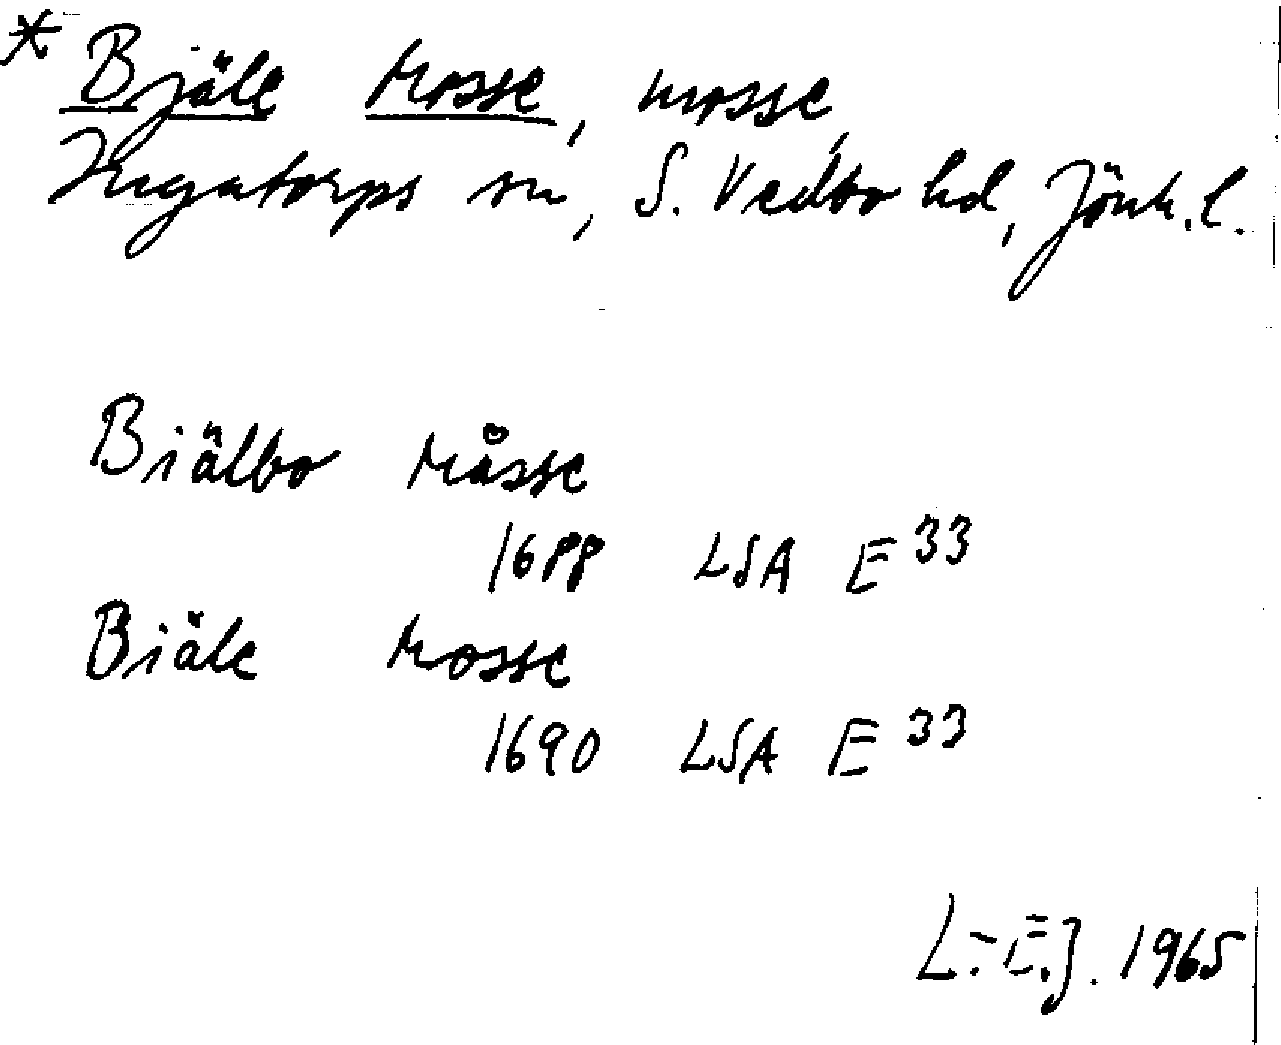 * Bjäle Mosse, mosse,
Ingatorps sn, S. Vedbo hd, Jönk.l.
Biälbo Måsse
1688 LSA E 33
Biäle Mosse
1690 LSA E 33
L.-E.J. 1965